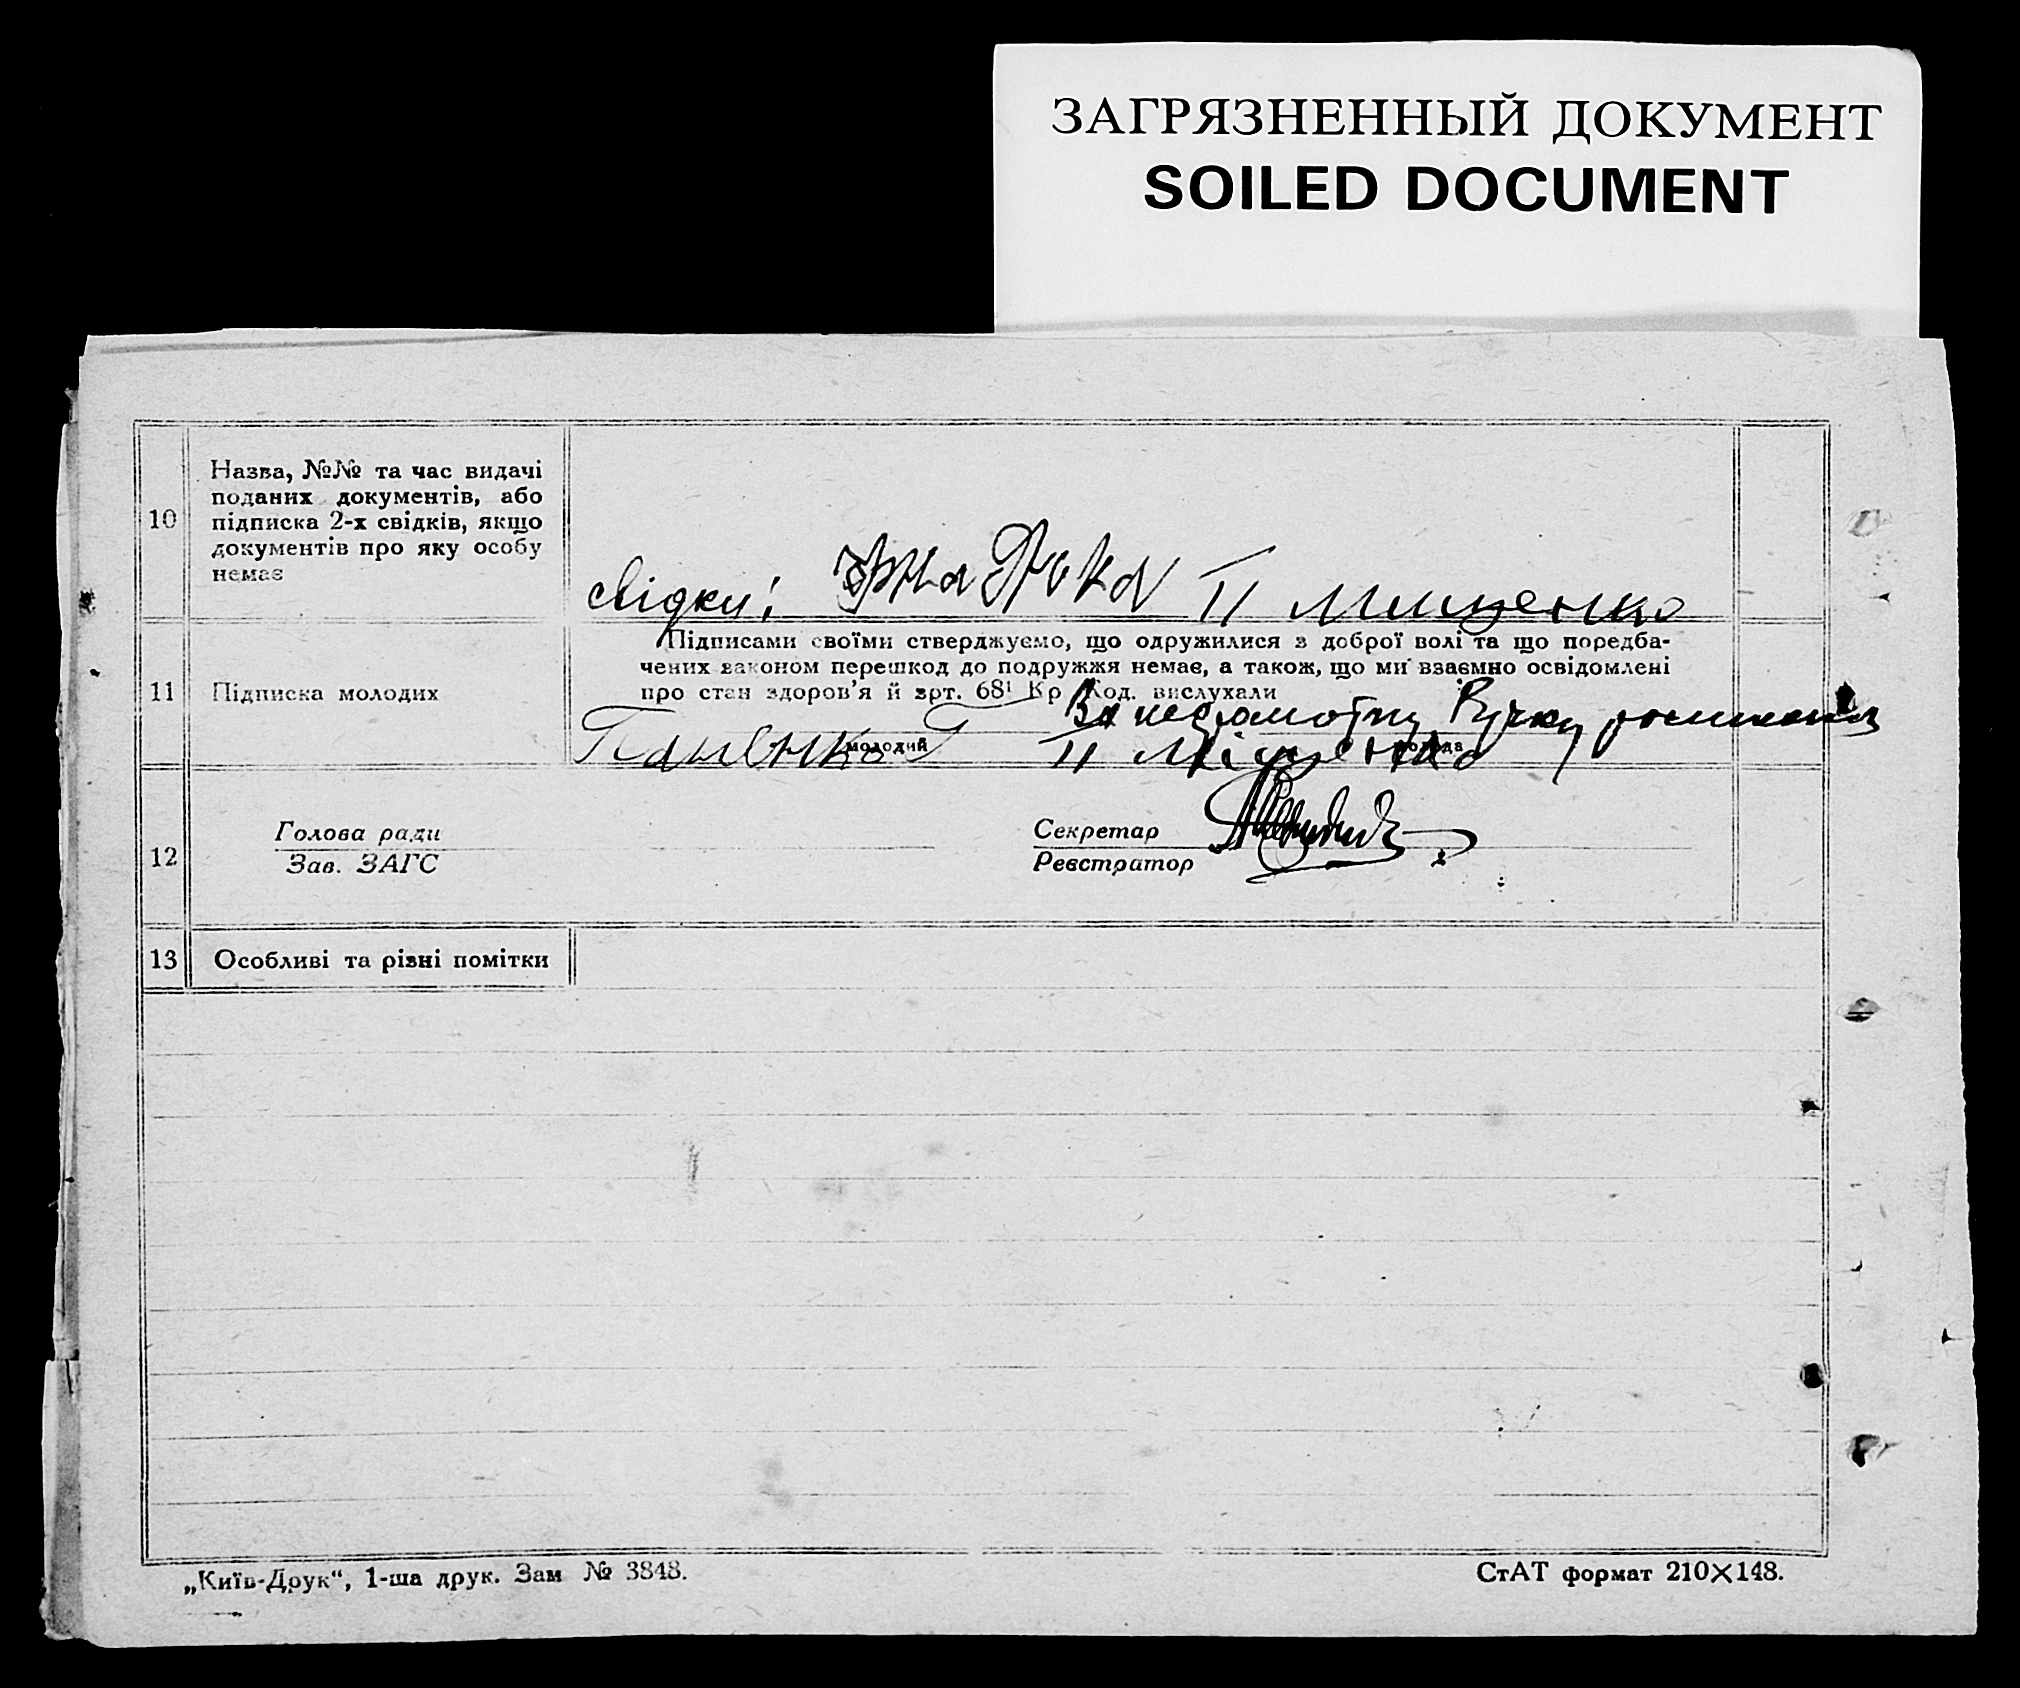 ЗАГРЯЗНЕННЫЙ ДОКУМЕНТ
SOILED DOCUMENT
10
Назва, №№ та час видачі
поданих документів, або
підписка 2-х свідків, якщо
документів про яку особу
немає
свідки: П Мищенко
11
Підписка молодих
Підписами своїми стверджуємо, що одружилися з доброї волі та що поредба-
чених законом перешкод до подружжя немає, а також, що ми взаємно освідомлені
про стан здоров'я й арт. 68¹ Кр Код. вислухали
За неграмотну
молодий
молода
П Міщенко
12
Голова ради
Зав. ЗАГС
Секретар
Реєстратор
13
Особливі та різні помітки
„Київ-Друк“, 1-ша друк. Зам № 3848.
СтАТ формат 210×148.